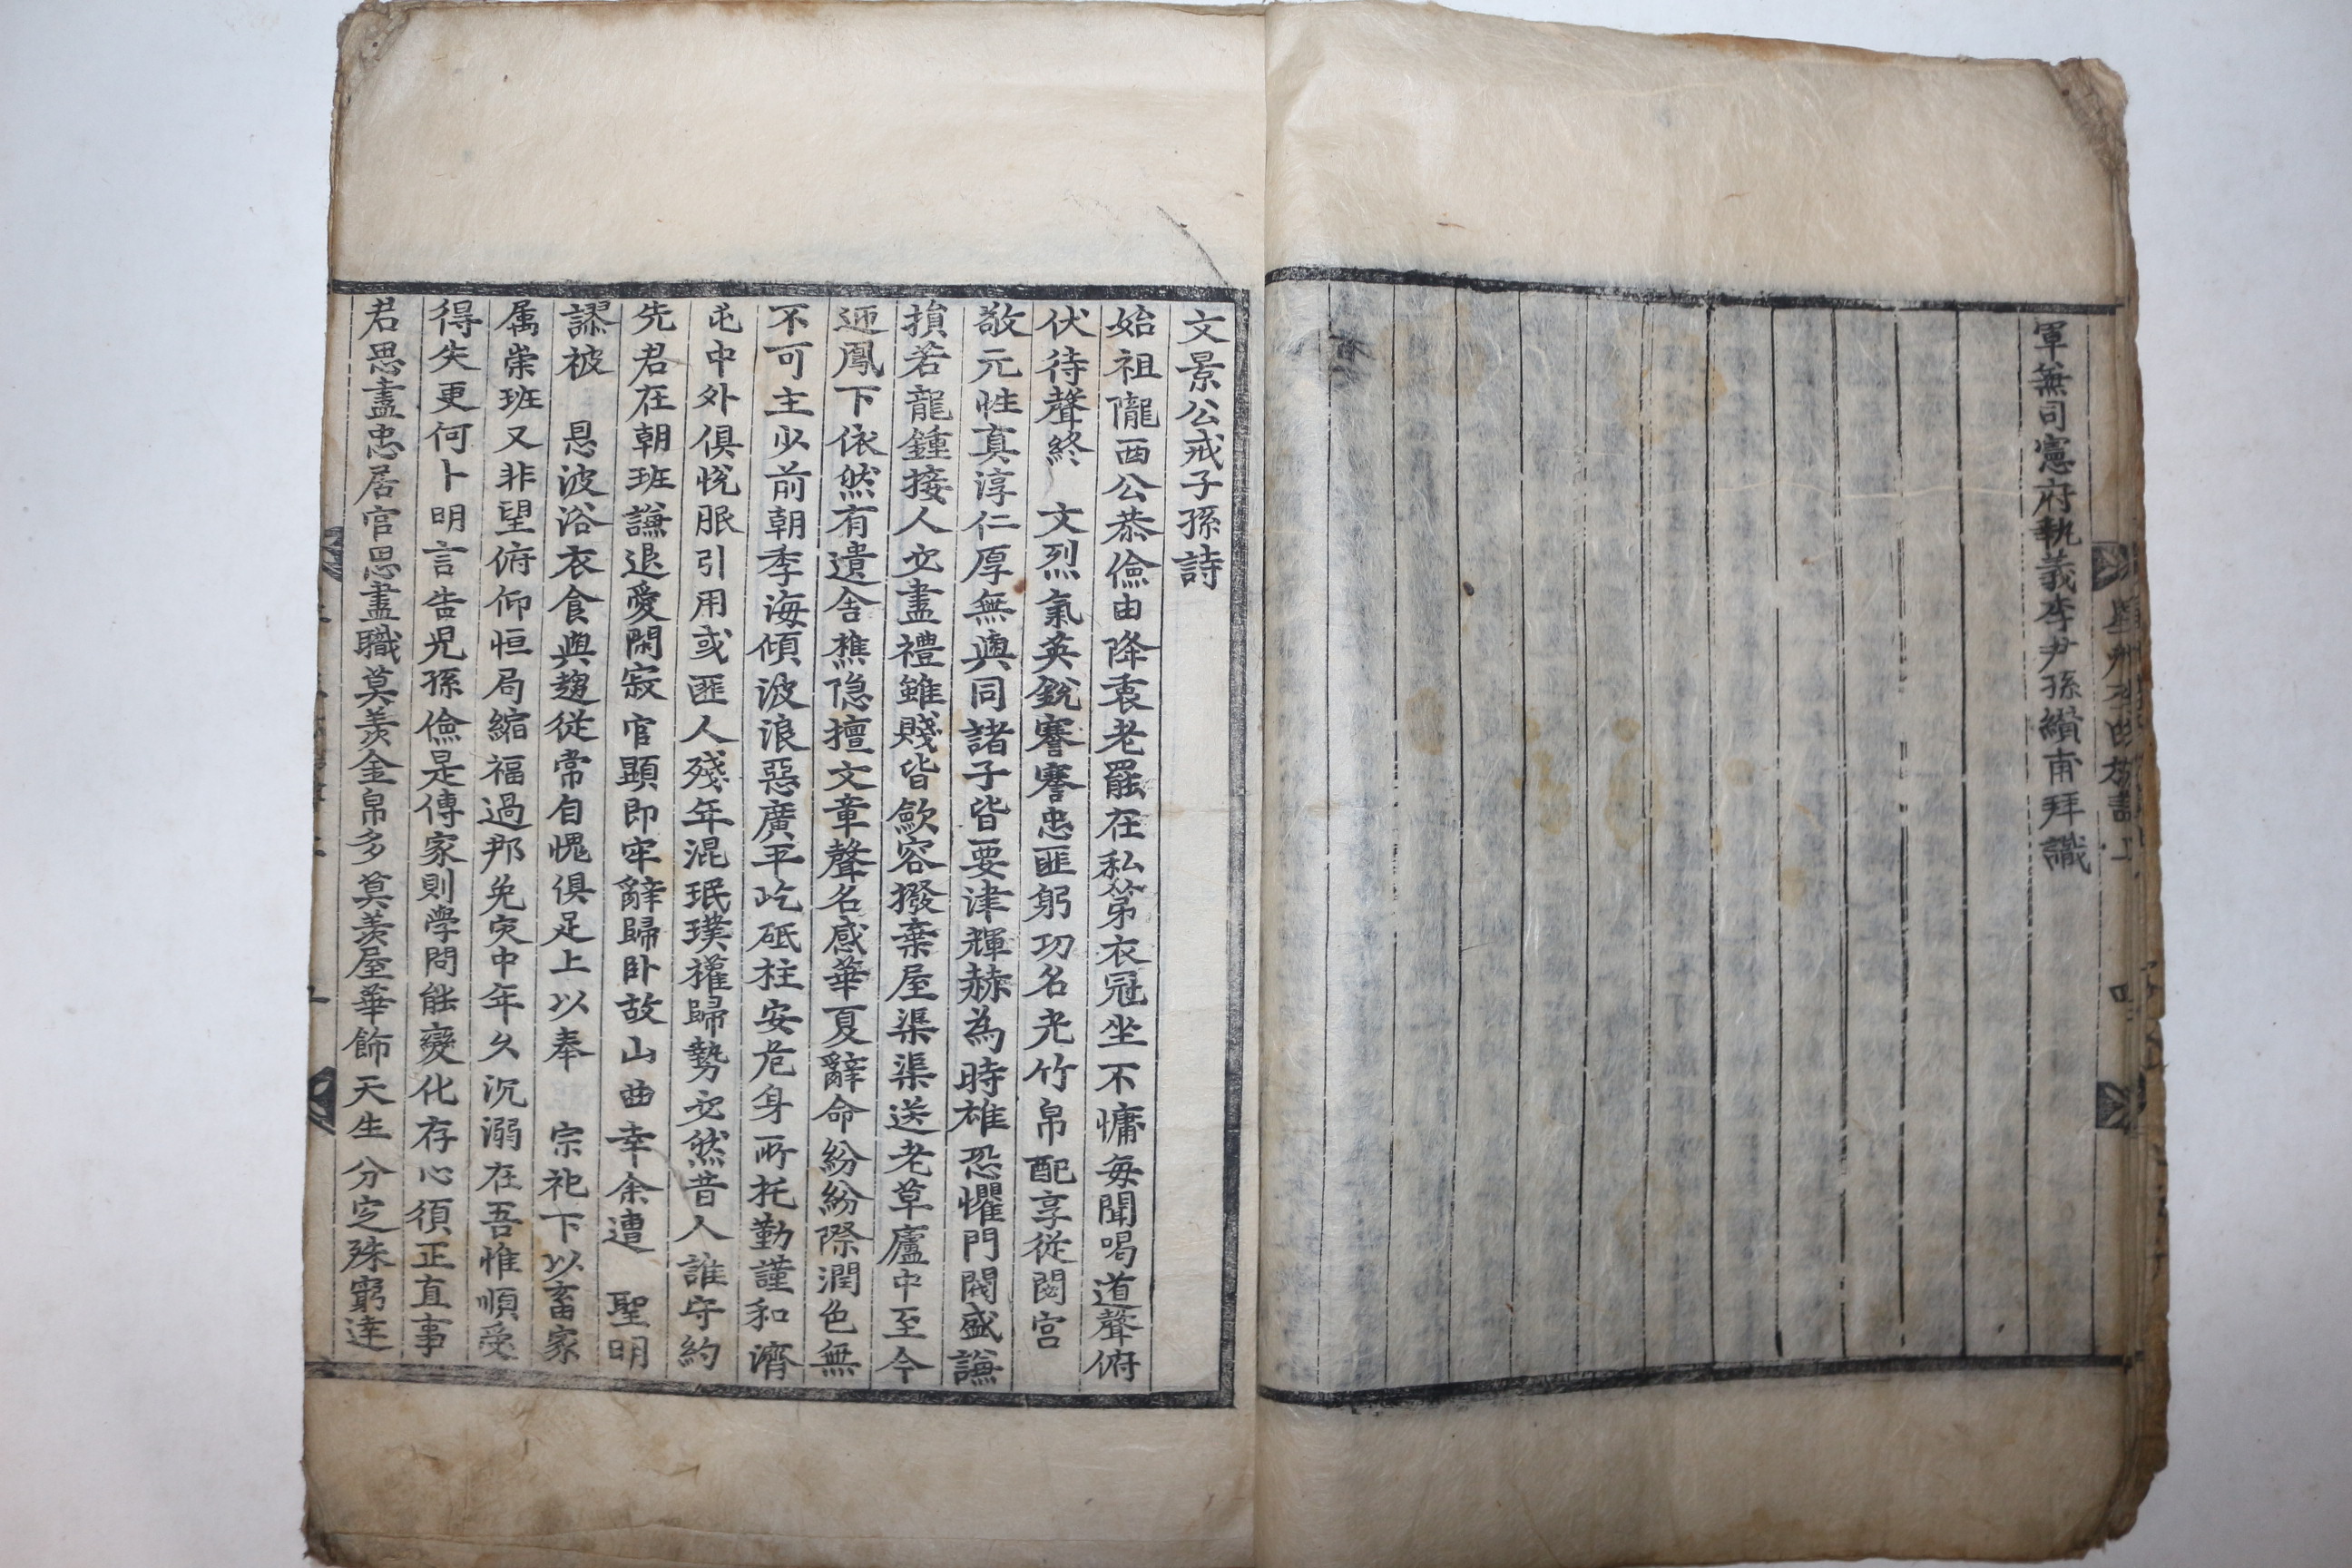 軍兼司憲府執義李尹孫纘甫拜識
文景公戒子孫詩
始祖隴西公恭儉由降衷老罷在私第衣冠坐不慵每聞喝道聲俯
伏待聲終 文烈氣英銳謇謇忠匪躬功名光竹帛配享從閟宮
敬元性真淳仁厚無與同諸子皆要津輝赫為時雄恐懼門閥盛謙
損若龍鍾接人必盡禮雖賤皆歛容撥棄屋渠渠送老草廬中至今
迊鳳下依然有遺舍樵隐擅文章聲名感華夏辭命紛紛際潤色無
不可主少前朝季海傾波浪惡廣平屹砥柱安危身所托勤謹和濟
屯中外俱悅服引用或匪人殘年混珉璞權歸勢必然昔人誰守約
先君在朝班謙退愛閑寂官顯即牢辭歸卧故山曲幸余遭 聖明
謬被 恩波浴衣食與趨從常自愧俱足上以奉 宗祀下以畜家
属崇班又非望俯仰恒局縮福過那免灾中年久沉溺在吾惟順受
得失更何卜明言告兒孫儉是傳家則學問能變化存心須正直事
君思盡忠居官思盡職莫羨金帛多莫羨屋華飾天生分定殊窮達